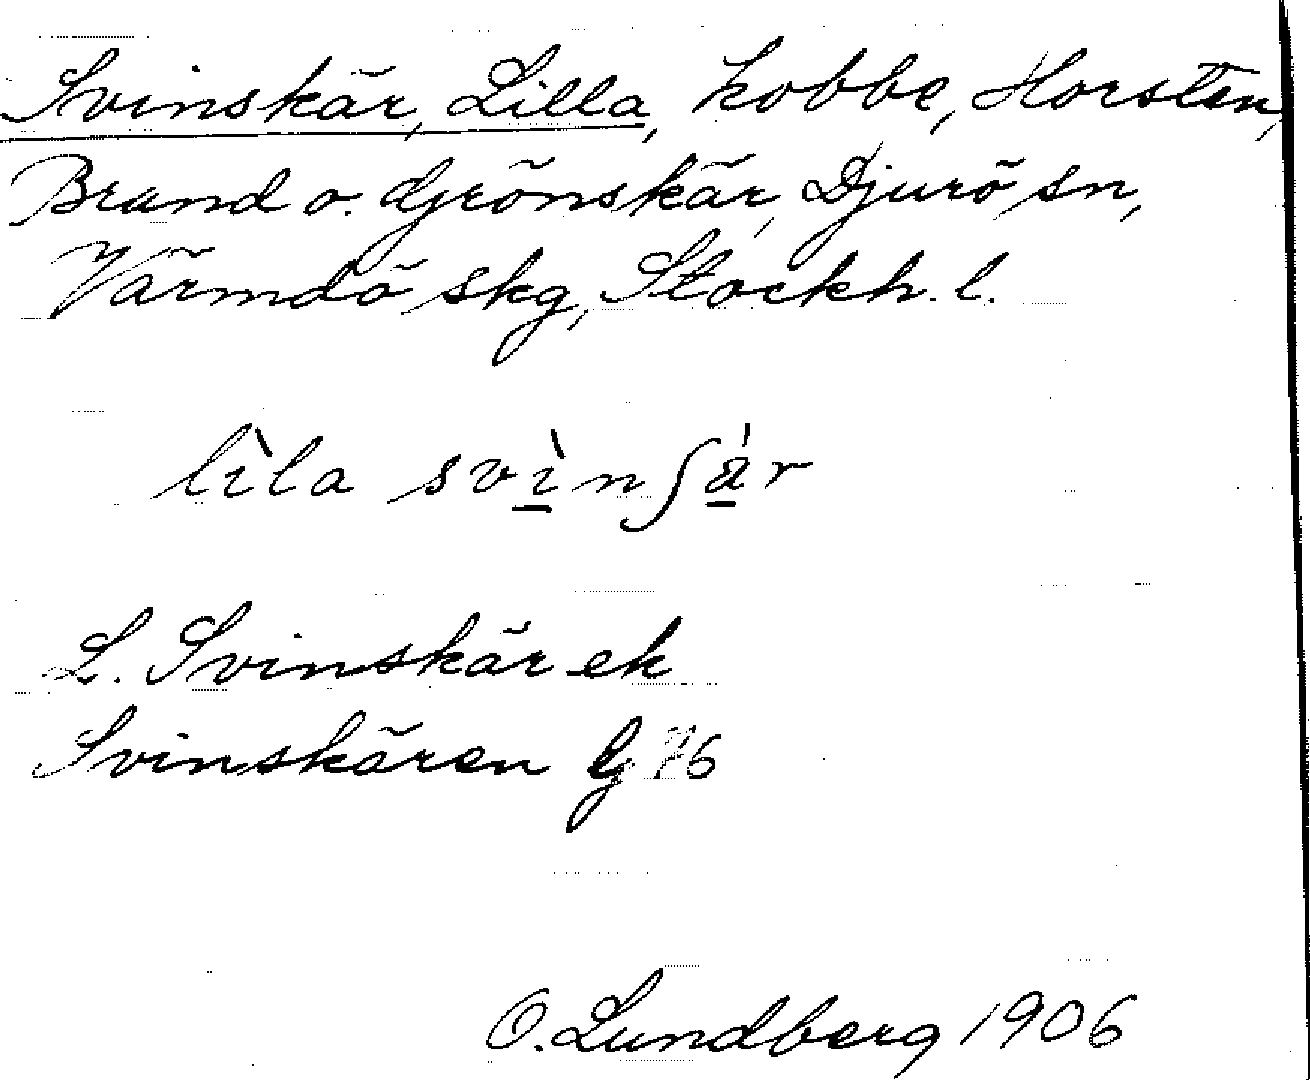 Svinskär, Lilla, kobbe, Horsten,
Brand o. Grönskär, Djurö sn,
Värmdö skg, Stockh. l.
lìla svì̠nʃä̠́r
L. Svinskär ek
Svinskären G 76
O. Lundberg 1906